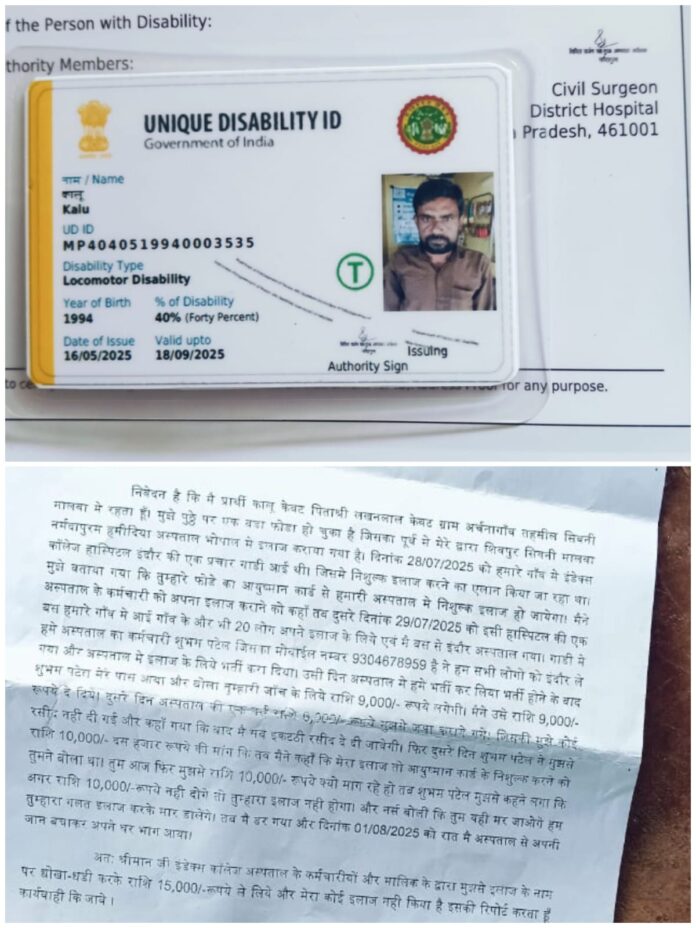 f the Person with Disability:
thority Members:
Civil Surgeon
District Hospital
Pradesh, 461001
UNIQUE DISABILITY ID
Government of India
नाम / Name
कालू
Kalu
UD ID
MP4040519940003535
Disability Type
Locomotor Disability
Year of Birth % of Disability
1994 40% (Forty Percent)
Date of Issue Valid upto
16/05/2025 18/09/2025
T
Issuing
Authority Sign
for any purpose.
निवेदन है कि मै प्रार्थी कालू केवट पिताश्री लखनलाल केवट ग्राम अर्चनागाँव तहसील सिवनी
मालवा मे रहता हूँ। मुझे पुठ्ठे पर एक बडा फोडा हो चुका है जिसका पूर्व मे मेरे द्वारा शिवपुर सिवनी मालवा
नर्मदापुरम हमीदिया अस्पताल भोपाल मे इलाज कराया गया है। दिनांक 28/07/2025 को हमारे गाँव मे इंडेक्स
कॉलेज हास्पिटल इंदौर की एक प्रचार गाडी आई थी। जिसमे निशुल्क इलाज करने का एलान किया जा रहा था।
मुझे बताया गया कि तुम्हारे फोडे का आयुष्मान कार्ड से हमारी अस्पताल मे निशुल्क इलाज हो जायेगा। मैने
अस्पताल के कर्मचारी को अपना इलाज कराने को कहाँ तब दुसरे दिनांक 29/07/2025 को इसी हास्पिटल की एक
बस हमारे गाँव मे आई गाँव के और भी 20 लोग अपने इलाज के लिये एवं मै बस से इंदौर अस्पताल गया। गाडी मे
हमे अस्पताल का कर्मचारी शुभम पटेल जिसका मोबाईल नम्बर 9304678959 है ने हम सभी लोगो को इंदौर ले
गया और अस्पताल मे इलाज के लिये भर्ती करा दिया। उसी दिन अस्पताल मे हमे भर्ती कर लिया भर्ती होने के बाद
शुभम पटेल मेरे पास आया और बोला तुम्हारी जाँच के लिये राशि 9,000/- रूपये लगेगी। मैने उसे राशि 9,000/-
रूपये दे दिये। दुसरे दिन अस्पताल की एक 6,000/- रूपये मुझसे जमा कराये गये। जिसकी मुझे कोई
रसीद नही दी गई और कहाँ गया कि बाद मे सब इकटठी रसीद दे दी जावेगी। फिर दुसरे दिन शुभम पटेल ने मुझसे
राशि 10,000/- दस हजार रूपये की मांग कि तब मैने कहाँ कि मेरा इलाज तो आयुष्मान कार्ड के निशुल्क करने को
तुमने बोला था। तुम आज फिर मुझसे राशि 10,000/- रूपये क्यो माग रहे हो तब शुभम पटेल मुझसे कहने लगा कि
अगर राशि 10,000/-रूपये नही दोगे तो तुम्हारा इलाज नही होगा। और नर्स बोली कि तुम यही मर जाओगे हम
तुम्हारा गलत इलाज करके मार डालेगे। तब मै डर गया और दिनांक 01/08/2025 को रात मे अस्पताल से अपनी
जान बचाकर अपने घर भाग आया।
अतः श्रीमान जी इंडेक्स कॉलेज अस्पताल के कर्मचारीयों और मालिक के द्वारा मुझसे इलाज के नाम
पर धोखा-धडी करके राशि 15,000/-रूपये ले लिये और मेरा कोई इलाज नही किया है इसकी रिपोर्ट करता हूँ
कार्यवाही कि जावे।